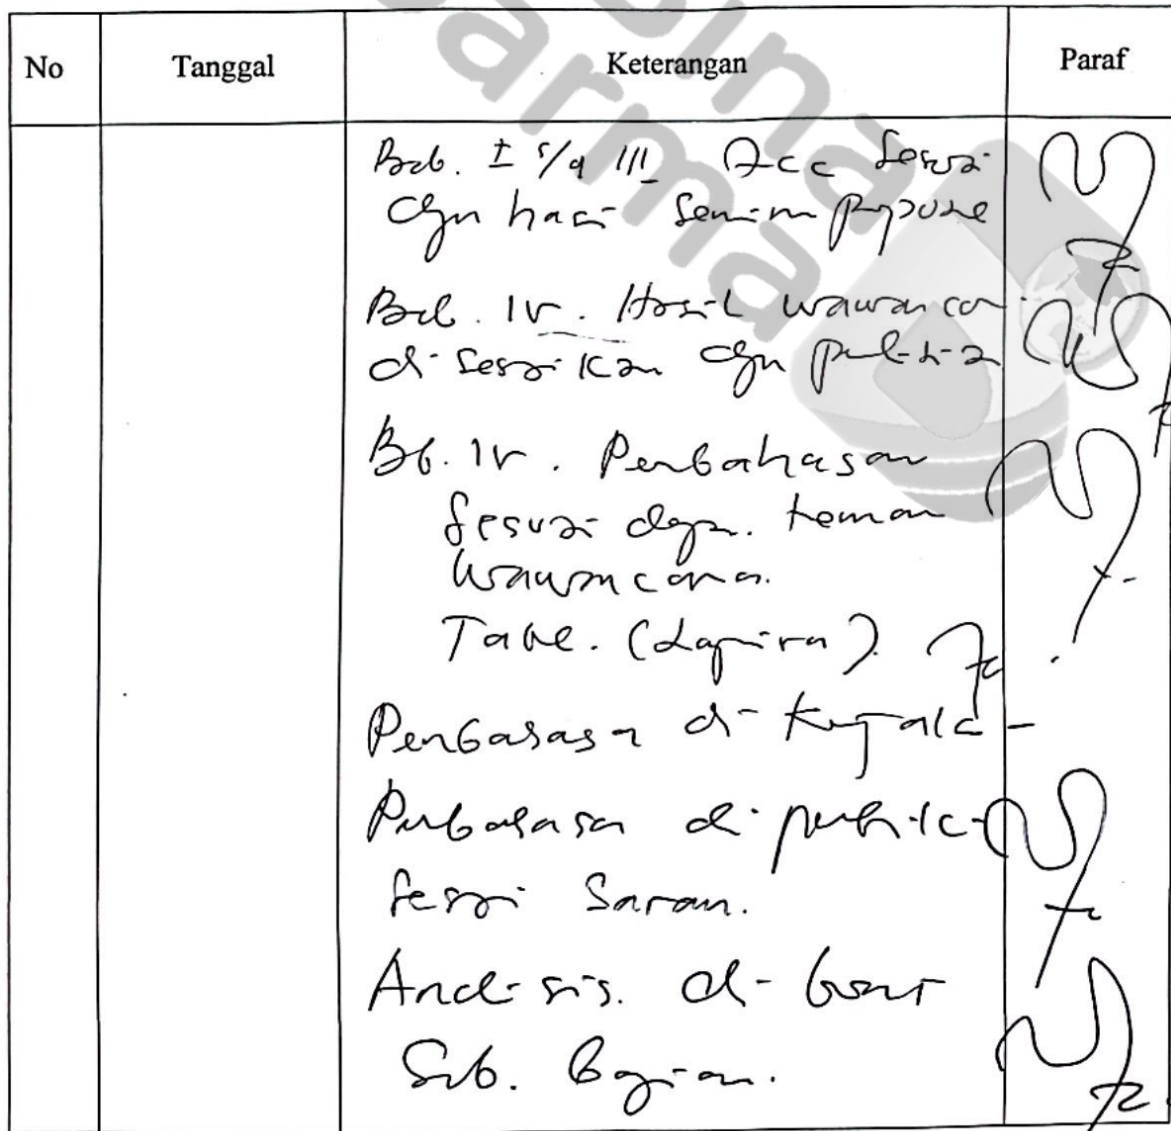 bina
darma
No Tanggal Keterangan Paraf
Bab. I s/d III Acc sesuai
dgn hasil seminar proposal
Bab. IV. Hasil wawancara
disesuaikan dgn
Bab. IV. Pembahasan
sesuai dgn. teman
wawancara.
Tabel. (Lampiran)
Pembahasan di
Pembahasan di perbaiki
sesuai Saran.
Analisis. di buat
Sub. Bagian.